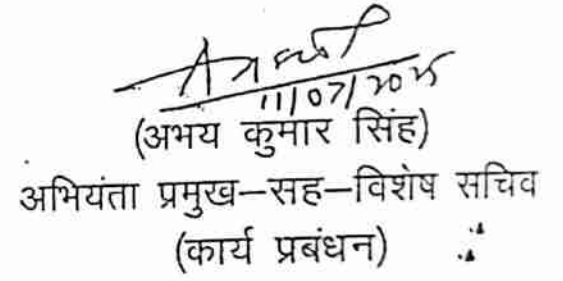 11/07/2025
(अभय कुमार सिंह)
अभियंता प्रमुख–सह–विशेष सचिव
(कार्य प्रबंधन)